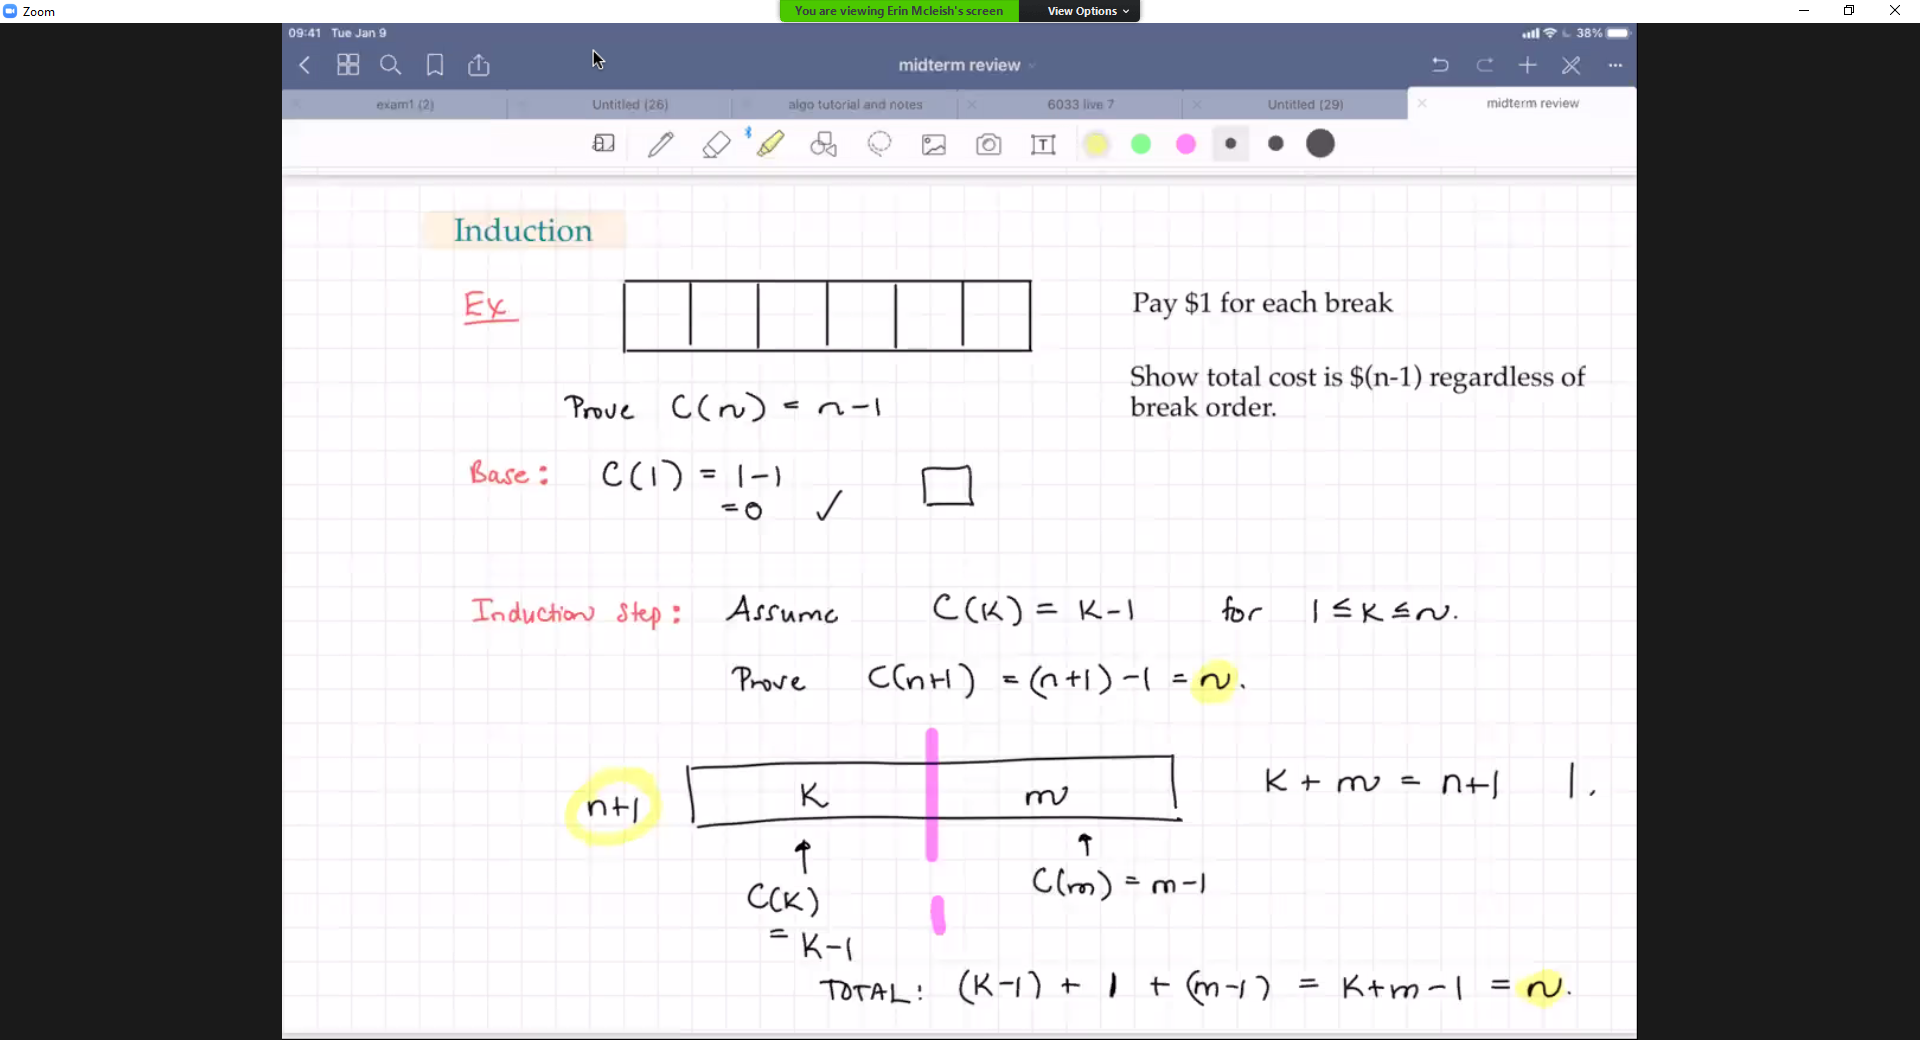 Zoom
You are viewing Erin Mcleish's screen
View Options
09:41 Tue Jan 9
38%
midterm review
exam1 (2)
Untitled (26)
algo tutorial and notes
6033 live 7
Untitled (29)
midterm review
T
Induction
Ex
Pay $1 for each break
Show total cost is $(n-1) regardless of
break order.
Prove C(n) = n-1
Base: C(1) = 1-1
=0 ✓
Induction Step: Assume C(K) = K-1 for 1≤K≤n.
Prove C(n+1) = (n+1)-1 = n.
n+1
K
m
K + m = n+1 1.
C(K)
= K-1
C(m) = m-1
TOTAL: (K-1) + 1 + (m-1) = K+m-1 = n.